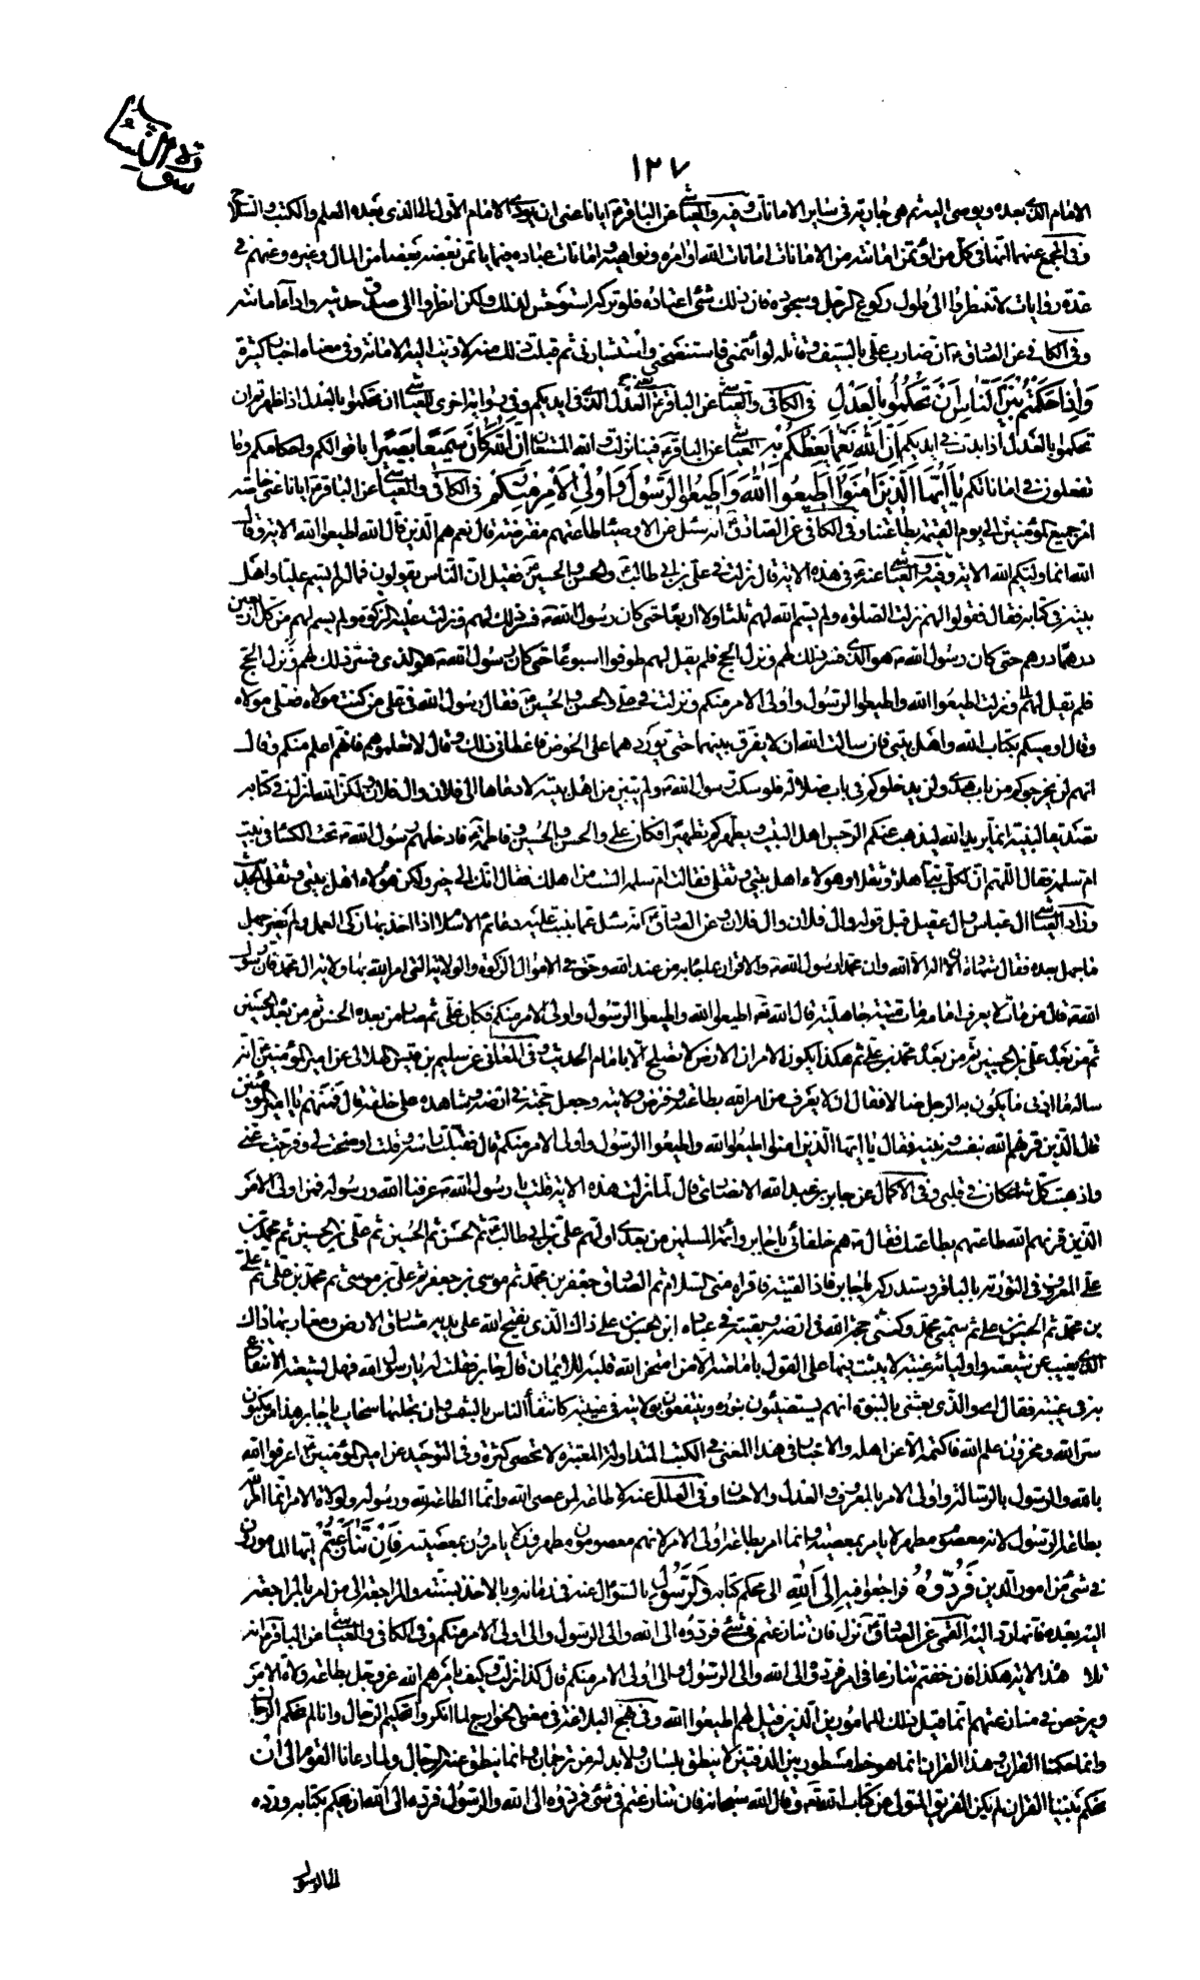 سورة النساء
١٢٧
الامام الذى بعده ويوصى اليه ثم هى جارية فى ساير الامانات وفيه والعياشى عن الباقر ع ايانا عنى ان يؤدى الامام الاول الى الذى بعده العلم والكتب والسلاح
وفى المجمع عنهما انها فى كل من اؤتمن امانة من الامانات امانات الله اوامره ونواهيه وامانات عباده فيما ياتمن بعضهم بعضا من المال وغيره وعنهم فى
عدة روايات لا تنظروا الى طول ركوع الرجل وسجوده فان ذلك شئ اعتاده فلو تركه استوحش لذلك ولكن انظروا الى صدق حديثه واداء امانته
وفى الكافى عن الصادق ع ان ضارب على بالسيف وقاتله لو ائتمننى واستنصحنى واستشارنى ثم قبلت ذلك منه لاديت اليه الامانة وفى معناه اخبار كثيرة
وَاِذَا حَكَمْتُمْ بَيْنَ النَّاسِ اَنْ تَحْكُمُوا بِالْعَدْلِ فى الكافى والعياشى عن الباقر ع يعنى العدل الذى فى ايديكم وفى رواية اخرى للعياشى ان تحكموا بالعدل اذا ظهرتم ان
تحكموا بالعدل اذا بدت فى ايديكم اِنَّ اللهَ نِعِمَّا يَعِظُكُمْ بِهِ العياشى عن الباقر ع فينا نزلت والله المستعان اِنَّ اللهَ كَانَ سَمِيعًا بَصِيرًا باقوالكم واحكامكم وما
تفعلون فى اماناتكم يَا اَيُّهَا الَّذِينَ اٰمَنُوا اَطِيعُوا اللهَ وَاَطِيعُوا الرَّسُولَ وَاُولِى الْاَمْرِ مِنْكُمْ فى الكافى والعياشى عن الباقر ع ايانا عنى خاصة
امر جميع المؤمنين الى يوم القيمة بطاعتنا وفى الكافى عن الصادق ع انه سئل عن الاوصياء طاعتهم مفترضة قال نعم هم الذين قال الله اطيعوا الله الاية وقال
الله انما وليكم الله الاية وفيه والعياشى عنه ع فى هذه الاية قال نزلت فى على بن ابى طالب والحسن والحسين ع فقيل ان الناس يقولون فما له لم يسم عليا واهل
بيته فى كتابه فقال فقولوا لهم نزلت الصلوة ولم يسم الله لهم ثلثا ولا اربعا حتى كان رسول الله ص فسر ذلك لهم ونزلت عليه الزكوة ولم يسم لهم من كل اربعين
درهما درهم حتى كان رسول الله ص هو الذى فسر ذلك لهم ونزل الحج فلم يقل لهم طوفوا اسبوعا حتى كان رسول الله ص هو الذى فسر ذلك لهم ونزل الحج
فلم يقل لهم ونزلت اطيعوا الله واطيعوا الرسول واولى الامر منكم ونزلت فى على والحسن والحسين ع فقال رسول الله فى على من كنت مولاه فعلى مولاه
وقال اوصيكم بكتاب الله واهل بيتى فان سالت الله ان لا يفرق بينهما حتى يوردهما على الحوض فاعطانى ذلك وقال لا تعلموهم فانهم اعلم منكم وقال
انهم لن يخرجوكم من باب هدى ولن يدخلوكم فى باب ضلالة فلو سكت رسول الله ص ولم يبين من اهل بيته لادعاها ال فلان وال فلان ولكن الله انزل فى كتابه
تصديقا لنبيه انما يريد الله ليذهب عنكم الرجس اهل البيت ويطهركم تطهيرا فكان على والحسن والحسين وفاطمة ع فادخلهم رسول الله ص تحت الكساء فى بيت
ام سلمة فقال اللهم ان لكل نبى اهلا وثقلا وهولاء اهل بيتى وثقلى فقالت ام سلمة الست من اهلك فقال انك الى خير ولكن هؤلاء اهل بيتى وثقلى الحديث
وزاد العياشى ال عباس وال عقيل قبل قوله وال فلان وال فلان وعن الصادق ع انه سئل عما بنيت عليه دعائم الاسلام اذا اخذ بها زكى العمل ولم يضر جهل
ما جهل بعده فقال شهادة ان لا اله الا الله وان محمدا رسول الله ص والاقرار بما جاء به من عند الله وحق فى الاموال الزكوة والولاية التى امر الله بها ولاية ال محمد فان رسول
الله ص قال من مات لا يعرف امامه مات ميتة جاهلية قال الله تعه اطيعوا الله واطيعوا الرسول واولى الامر منكم فكان على ثم صار من بعده الحسن ثم من بعده الحسين
ثم من بعده على بن الحسين ثم من بعده محمد بن على ثم هكذا يكون الامر ان الارض لا تصلح الا بامام الحديث وفى المعانى عن سليم بن قيس الهلالى عن امير المؤمنين ع انه
ساله ما ادنى ما يكون به الرجل ضالا فقال ان لا يعرف من امر الله بطاعته وفرض ولايته وجعل حجته فى ارضه وشاهده على خلقه قال فمن هم يا امير المؤمنين
قال الذين قرنهم الله بنفسه ونبيه فقال يا ايها الذين امنوا اطيعوا الله واطيعوا الرسول واولى الامر منكم قال فقبلت راسه وقلت اوضحت لى وفرجت عنى
واذهبت كل شك كان فى قلبى وفى الاكمال عن جابر بن عبد الله الانصارى قال لما نزلت هذه الاية قلت يا رسول الله ص عرفنا الله ورسوله فمن اولى الامر
الذين قرنهم الله طاعتهم بطاعتك فقال ص هم خلفائى يا جابر وائمة المسلمين من بعدى اولهم على بن ابى طالب ثم الحسن ثم الحسين ثم على بن الحسين ثم محمد بن
على المعروف فى التورية بالباقر وستدركه يا جابر فاذا لقيته فاقراه منى السلام ثم الصادق جعفر بن محمد ثم موسى بن جعفر ثم على بن موسى ثم محمد بن على ثم على
بن محمد ثم الحسن بن على ثم سميى محمد وكنيى حجة الله فى ارضه وبقيته فى عباده ابن الحسن بن على ذاك الذى يفتح الله على يديه مشارق الارض ومغاربها ذاك
الذى يغيب عن شيعته واوليائه غيبة لا يثبت فيها على القول بامامته الا من امتحن الله قلبه للايمان قال جابر فقلت له يا رسول الله فهل لشيعته الانتفاع
به فى غيبته فقال اى والذى بعثنى بالنبوة انهم يستضيئون بنوره وينتفعون بولايته فى غيبته كانتفاع الناس بالشمس وان تجلاها سحاب يا جابر هذا من مكنون
سر الله ومخزون علم الله فاكتمه الا عن اهله والاخبار فى هذا المعنى فى الكتب المتداولة المعتبرة لا تحصى كثرة وفى التوحيد عن امير المؤمنين ع اعرفوا الله
بالله والرسول بالرسالة واولى الامر بالمعروف والعدل والاحسان وفى العلل عنه ع لا طاعة لمن عصى الله وانما الطاعة لله ورسوله ولولاة الامر انما امر الله
بطاعة الرسول لانه معصوم مطهر لا يامر بمعصية وانما امر بطاعة اولى الامر لانهم معصومون مطهرون لا يامرون بمعصيته فَاِنْ تَنَازَعْتُمْ ايها المامورون
فى شئ من امور الدين فَرُدُّوهُ فراجعوا فيه اِلَى اللهِ الى محكم كتابه وَالرَّسُولِ بالسؤال عنه فى زمانه وبالاخذ بسنته والمراجعة الى من امر بالمراجعة
اليه بعده فانها رد اليه القمى عن الصادق ع نزل فان تنازعتم فى شئ فردوه الى الله والى الرسول والى اولى الامر منكم وفى الكافى والعياشى عن الباقر ع انه
تلا هذه الاية هكذا فان خفتم تنازعا فى امر فردوه الى الله والى الرسول والى اولى الامر منكم قال كذا نزلت وكيف يامرهم الله عز وجل بطاعة ولاة الامر
ويرخص فى منازعتهم انما قيل ذلك للمامورين الذين قيل لهم اطيعوا الله وفى نهج البلاغة فى معنى الخوارج لما انكروا تحكيم الرجال وانا لم نحكم الرجال
وانما حكمنا القران وهذا القران انما هو خط مسطور بين الدفتين لا ينطق بلسان ولا بد له من ترجمان وانما ينطق عنه الرجال ولما دعانا القوم الى ان
نحكم بيننا القران لم نكن الفريق المتولى عن كتاب الله تعه وقال الله سبحانه فان تنازعتم فى شئ فردوه الى الله والرسول فرده الى الله ان نحكم بكتابه ورده
الى الرسول